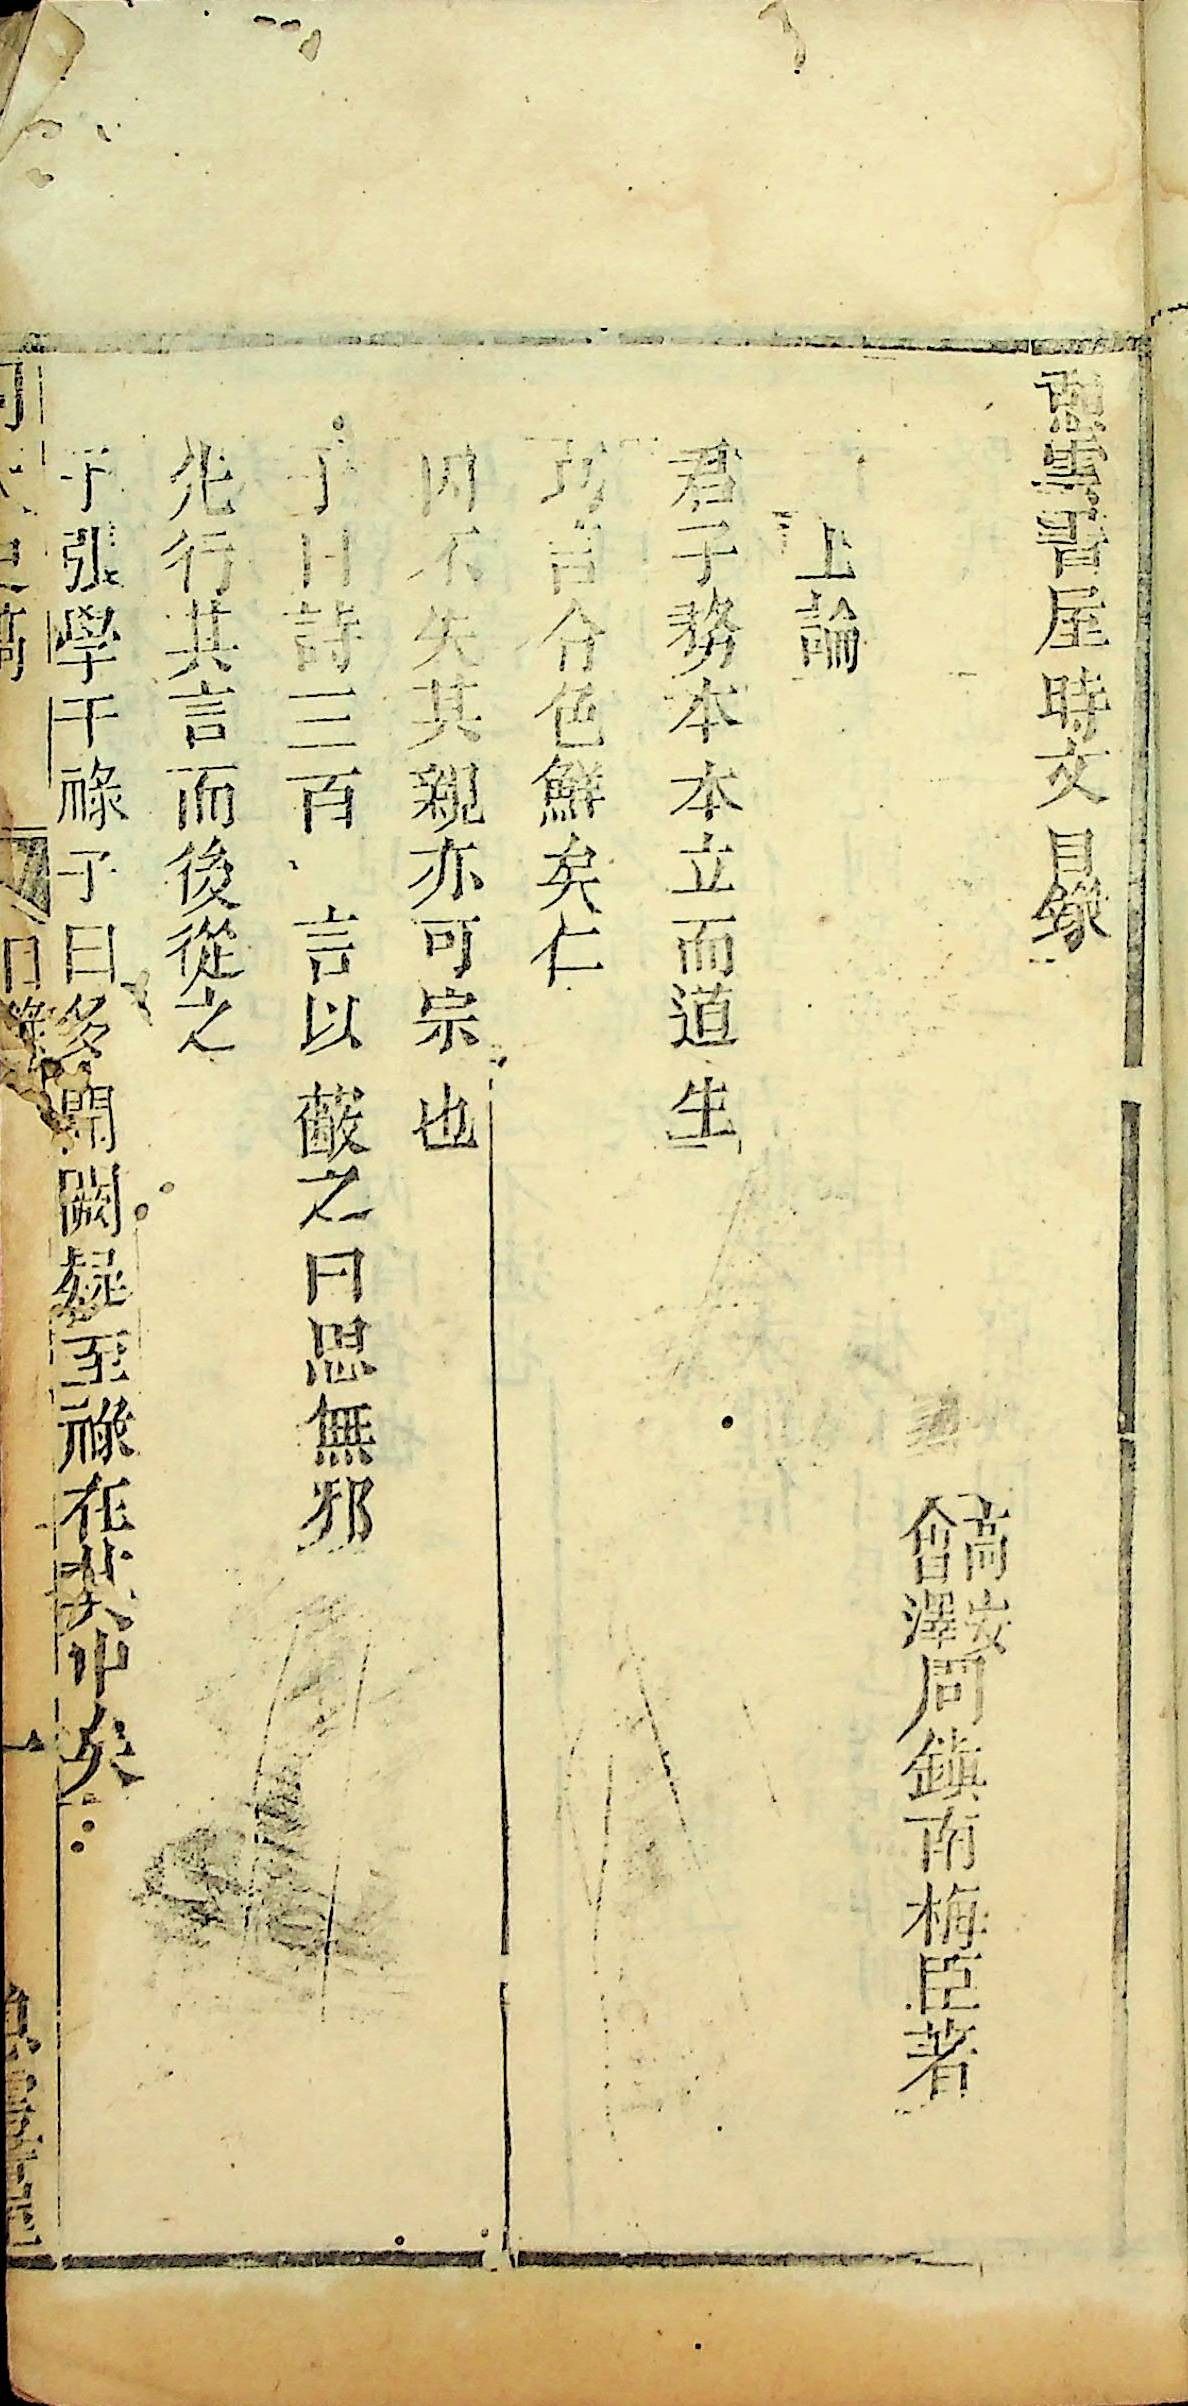 雲書屋時文目錄
高安
會澤
周鎮南梅臣著
上論
君子務本本立而道生
巧言令色鮮矣仁
因不失其親亦可宗也
子曰詩三百 言以蔽之曰思無邪
先行其言而後從之
子張學干祿子曰多聞闕疑至祿在其中矣
目錄
一